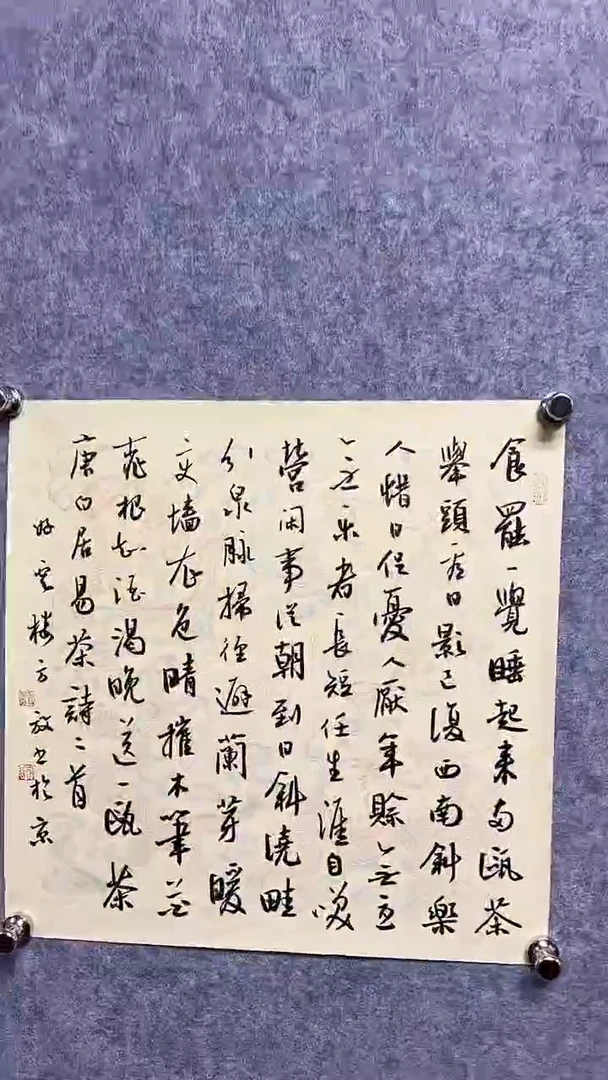 食罷一覺睡起來兩甌茶
舉頭看日影已復西南斜樂
人惜日促憂人厭年賒無憂
無樂者長短任生涯自哂
營閑事從朝到日斜澆畦
分泉脈掃徑避蘭芽暖
變墻衣色晴催木筆花
桃根知酒渴晚送一甌茶
唐白居易茶詩二首
好雲樓方放書於京